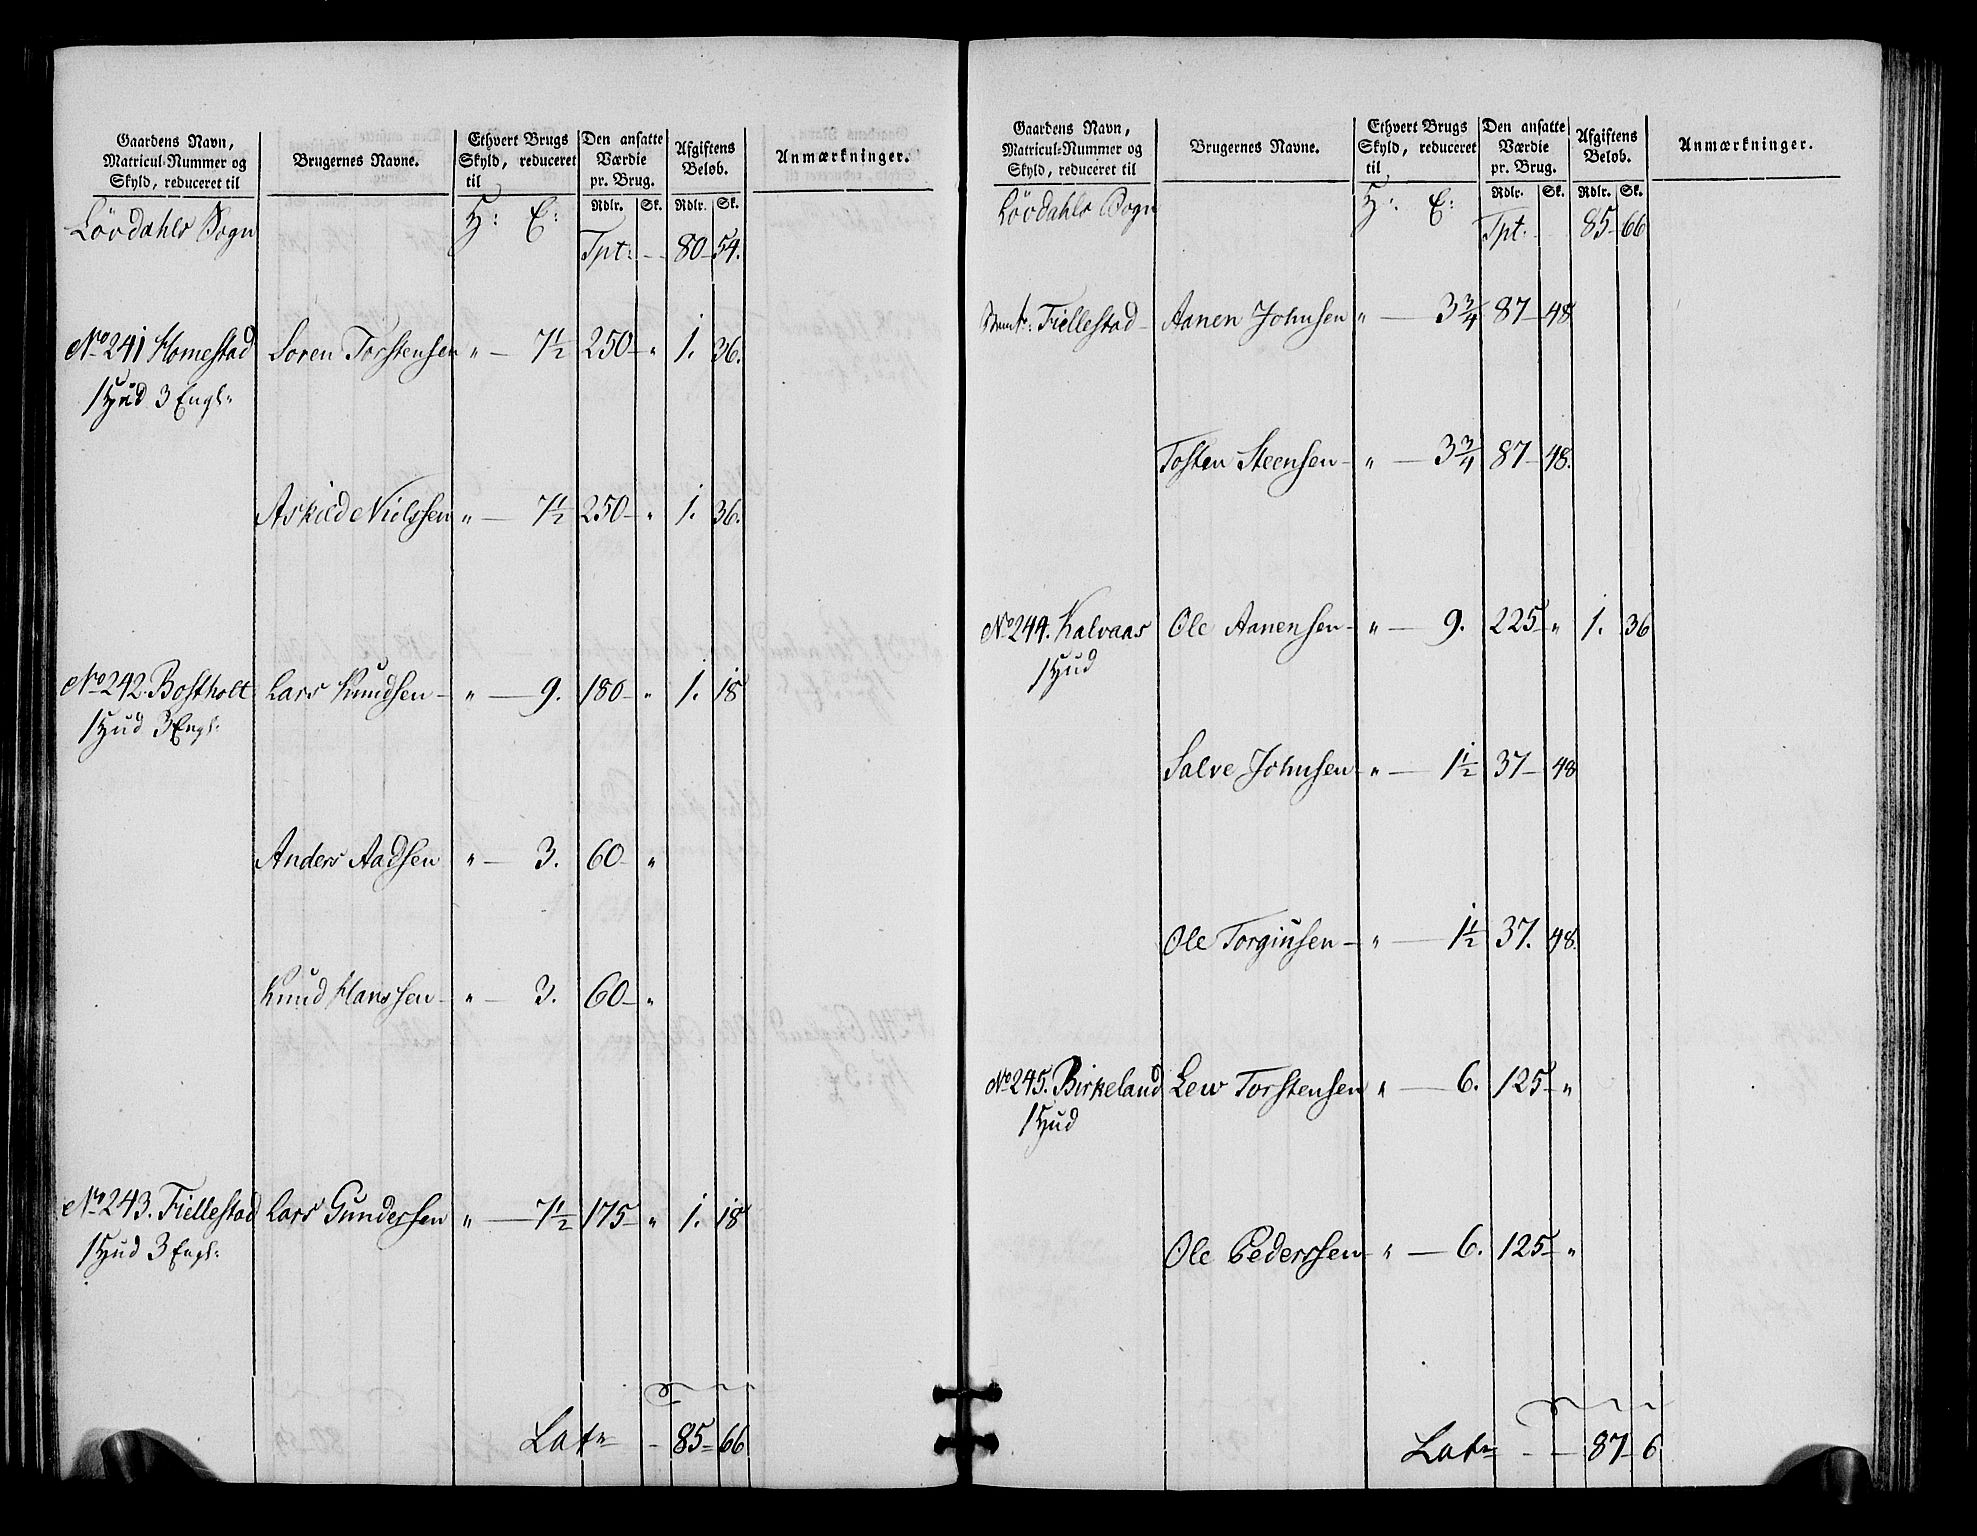 Gaardens Navn, Matricul-Nummer og Skyld, reduceret til | Brugernes Navne. | Ethvert Brugs Skyld, reduceret til | Den ansatte Værdie pr. Brug. Rdlr. Sk. | Afgiftens Beløb. Rdlr. Sk. | Anmærkninger.
Lövdahls Sogn H: E: Tpt: - - 80 - 54.
No 241 Homestad Soren Torstensen " - 7½ 250 - " 1. 36.
1 Hud 3 Engl:
Askild Nielssen " - 7½ 250 - " 1. 36.
No 242. Bostholt Lars Knudsen - " - 9. 180 - " 1. 18
1 Hud 3 Engl:
Anders Aadsen " - 3. 60 - "
Knud Hanssen - " - 3. 60 - "
No 243. Fiellestad Lars Gundersen " - 7½ 175 - " 1. 18
1 Hud 3 Engl:
Latr - 85 - 66
Gaardens Navn, Matricul-Nummer og Skyld, reduceret til | Brugernes Navne. | Ethvert Brugs Skyld, reduceret til | Den ansatte Værdie pr. Brug. Rdlr. Sk. | Afgiftens Beløb. Rdlr. Sk. | Anmærkninger.
Lövdahls Sogn H: E: Tpt: 85 - 66
Fiellestad - Aanen Johnsen " - 3¾ 87 - 48
Tosten Steensen - " - 3¾ 87 - 48.
No 244. Kalvaas Ole Aanensen - " - 9. 225 - " 1. 36
1 Hud
Salve Johnsen - " - 1½ 37 - 48
Ole Torgiusen - " - 1½ 37. 48.
No 245. Birkeland Lew Torstensen " - 6. 125 - "
1 Hud
Ole Pederssen - " - 6. 125 - "
Latr - - 87 - 6